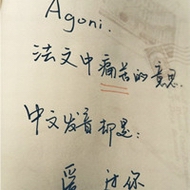 Agoni.
法文中痛苦的意思.
中文发音却是:
爱 你